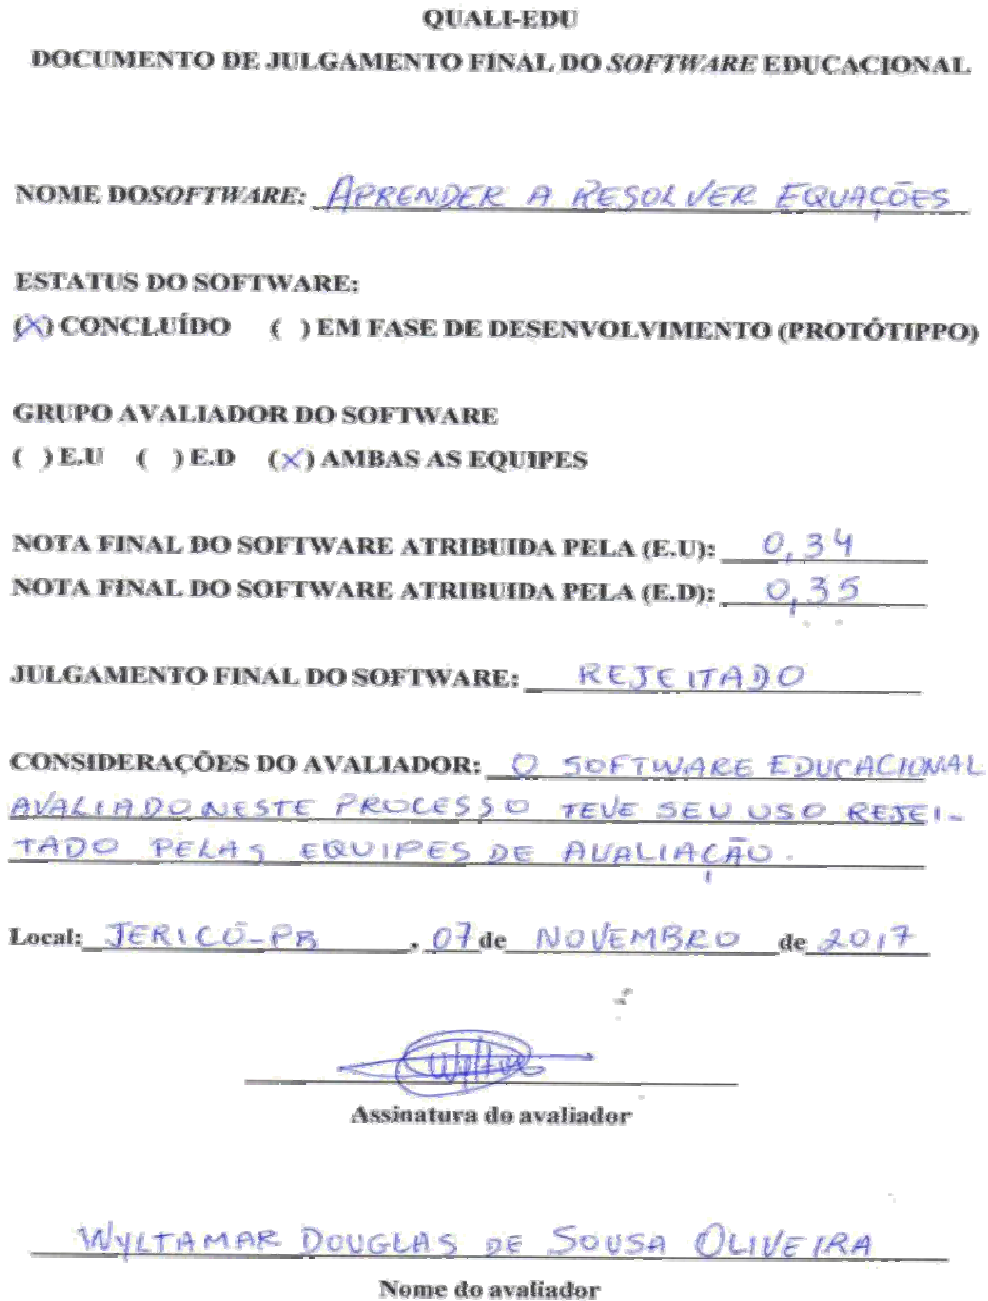 QUALI-EDU
DOCUMENTO DE JULGAMENTO FINAL DO SOFTWARE EDUCACIONAL
NOME DOSOFTWARE: APRENDER A RESOLVER EQUAÇÕES
ESTATUS DO SOFTWARE:
(X) CONCLUÍDO ( ) EM FASE DE DESENVOLVIMENTO (PROTÓTIPPO)
GRUPO AVALIADOR DO SOFTWARE
( ) E.U ( ) E.D (X) AMBAS AS EQUIPES
NOTA FINAL DO SOFTWARE ATRIBUIDA PELA (E.U): 0,34
NOTA FINAL DO SOFTWARE ATRIBUIDA PELA (E.D): 0,35
JULGAMENTO FINAL DO SOFTWARE: REJEITADO
CONSIDERAÇÕES DO AVALIADOR: O SOFTWARE EDUCACIONAL
AVALIADO NESTE PROCESSO TEVE SEU USO REJEI-
TADO PELAS EQUIPES DE AVALIAÇÃO.
Local: JERICÓ-PB, 07 de NOVEMBRO de 2017
Assinatura do avaliador
WYLTAMAR DOUGLAS DE SOUSA OLIVEIRA
Nome do avaliador